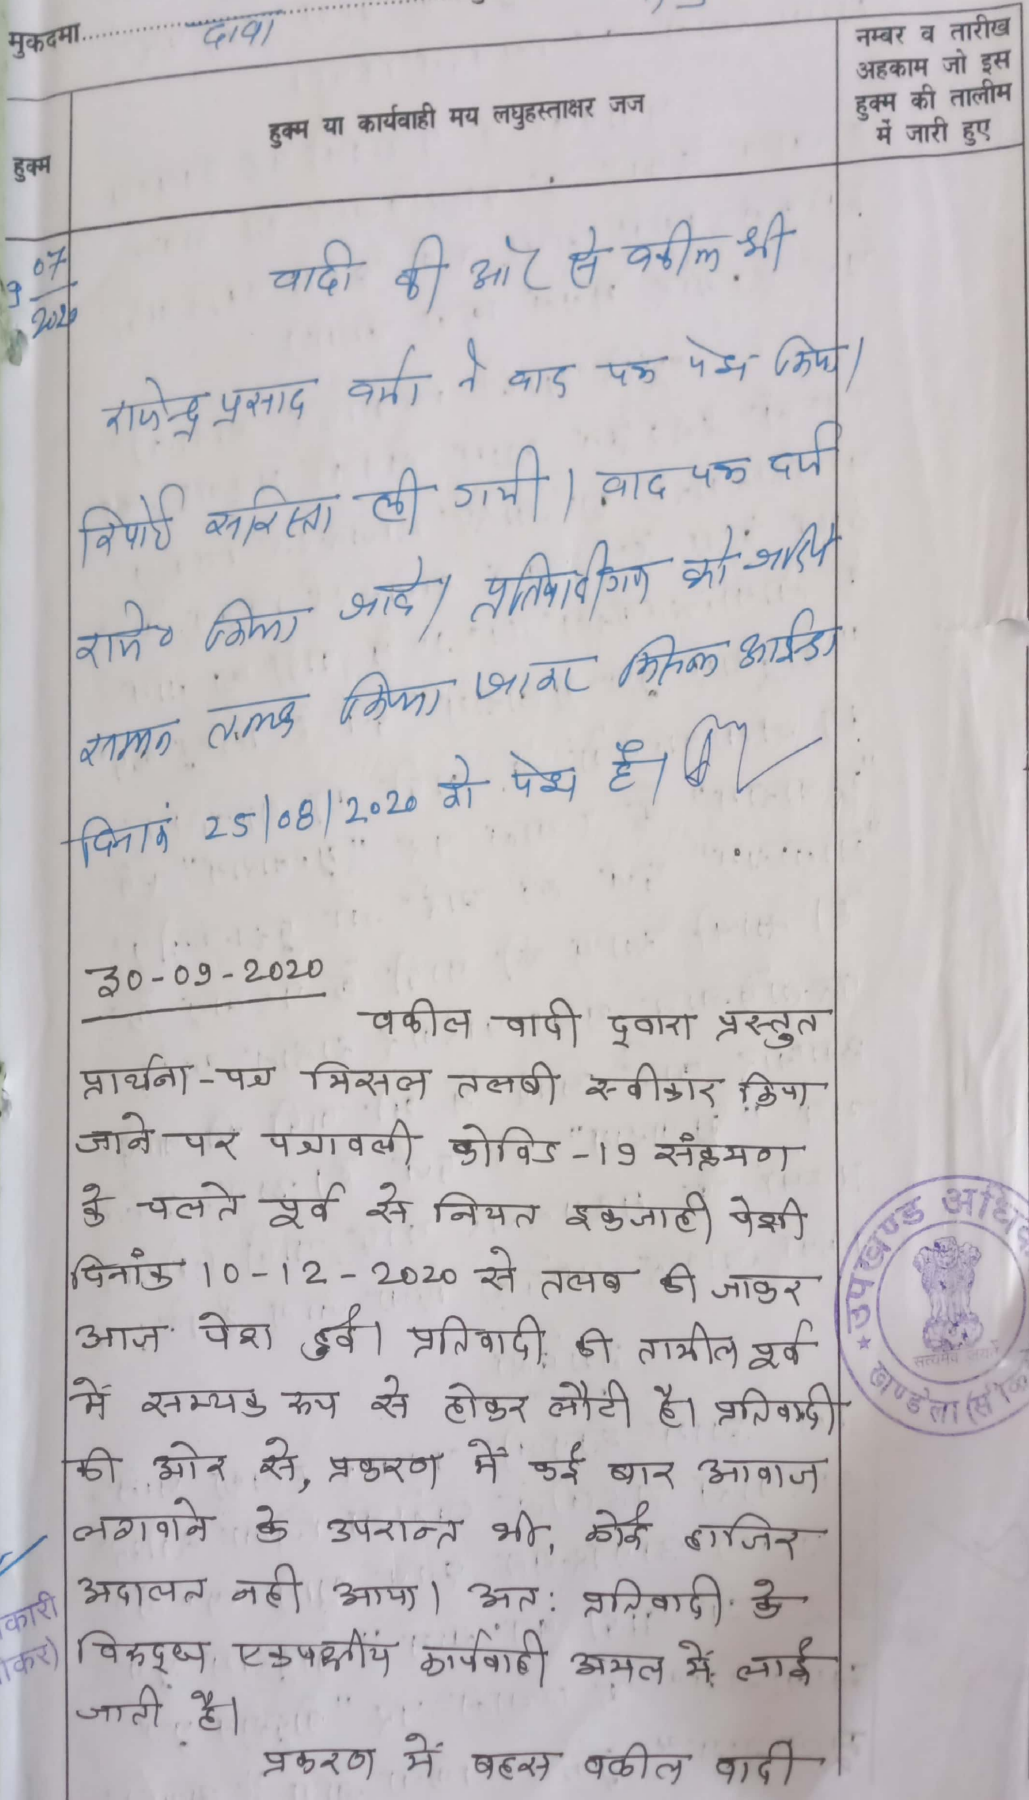 मुकदमा.................दावा
नम्बर व तारीख
अहकाम जो इस
हुक्म की तालीम
में जारी हुए
हुक्म
हुक्म या कार्यवाही मय लघुहस्ताक्षर जज
07
2020
वादी की ओर से वकील श्री
राजेन्द्र प्रसाद वर्मा ने वाद पत्र पेश किया।
रिपोर्ट सरिस्ता ली गयी। वाद पत्र दर्ज
राजे० किया जावे। प्रतिवादीगण को जरिये
समन तलब किया जाकर मिसल आईन्दा
दिनांक 25/08/2020 को पेश हैं।
30-09-2020
वकील वादी द्वारा प्रस्तुत
प्रार्थना-पत्र मिसल तलबी स्वीकार किया
जाने पर पत्रावली कोविड-19 संक्रमण
के चलते पूर्व से नियत इकजाही पेशी
दिनांक 10-12-2020 से तलब की जाकर
आज पेश हुई। प्रतिवादी की तामील पूर्व
में सम्यक रूप से होकर लौटी है। प्रतिवादी
की ओर से, प्रकरण में कई बार आवाज
लगवाने के उपरान्त भी, कोई हाजिर
अदालत नही आया। अत: प्रतिवादी के
विरूद्ध एकपक्षीय कार्यवाही अमल में लाई
जाती है।
प्रकरण में बहस वकील वादी
उपखण्ड अधिक
सत्यमेव जयते
खण्डेला (सी
कारी
कर)